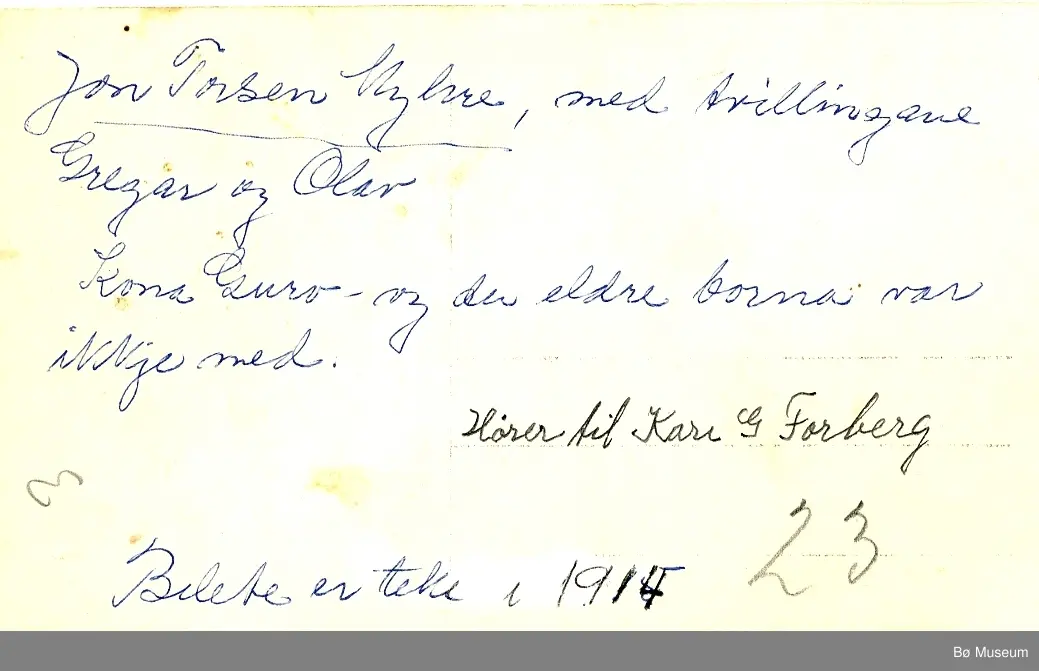 Jon Torsen Nykre, med tvillingane
Gregar og Olav
Kona Guro - og dei eldre borna var
ikkje med.
Hører til Kari G Forberg
3
23
Bilete er teke i 1914
Bø Museum